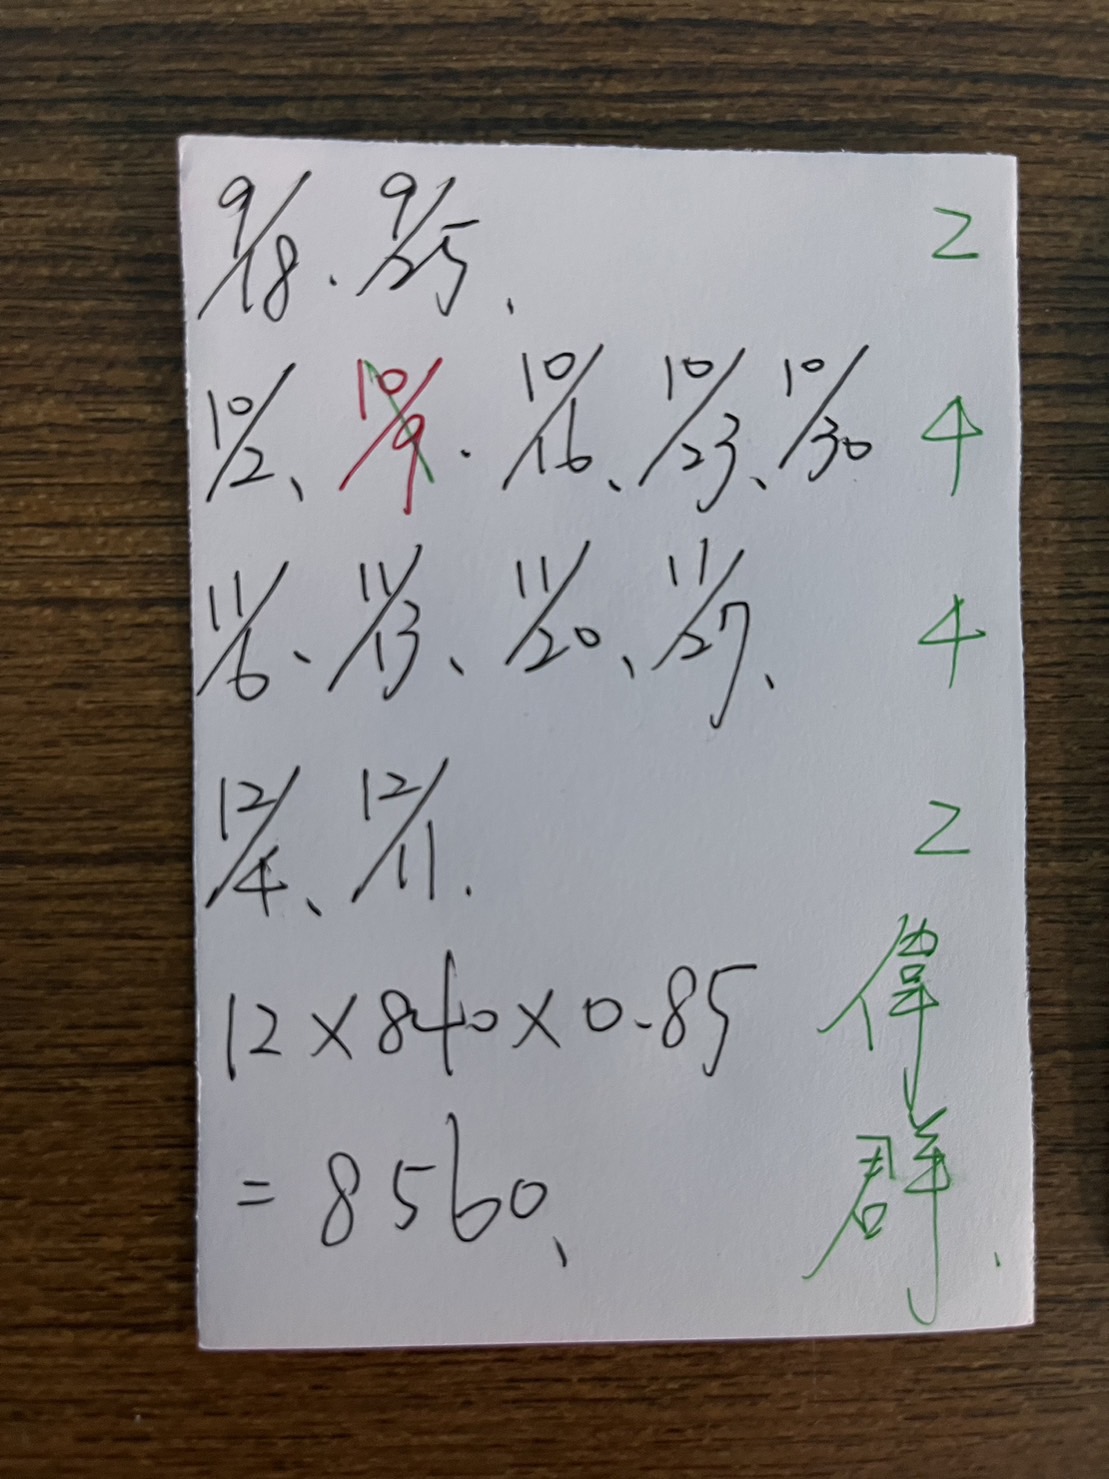 9/18、9/25、 2
10/2、10/9、10/16、10/23、10/30 4
11/6、11/13、11/20、11/27、 4
12/4、12/11、 2
12×840×0.85
=8560、
偉群、